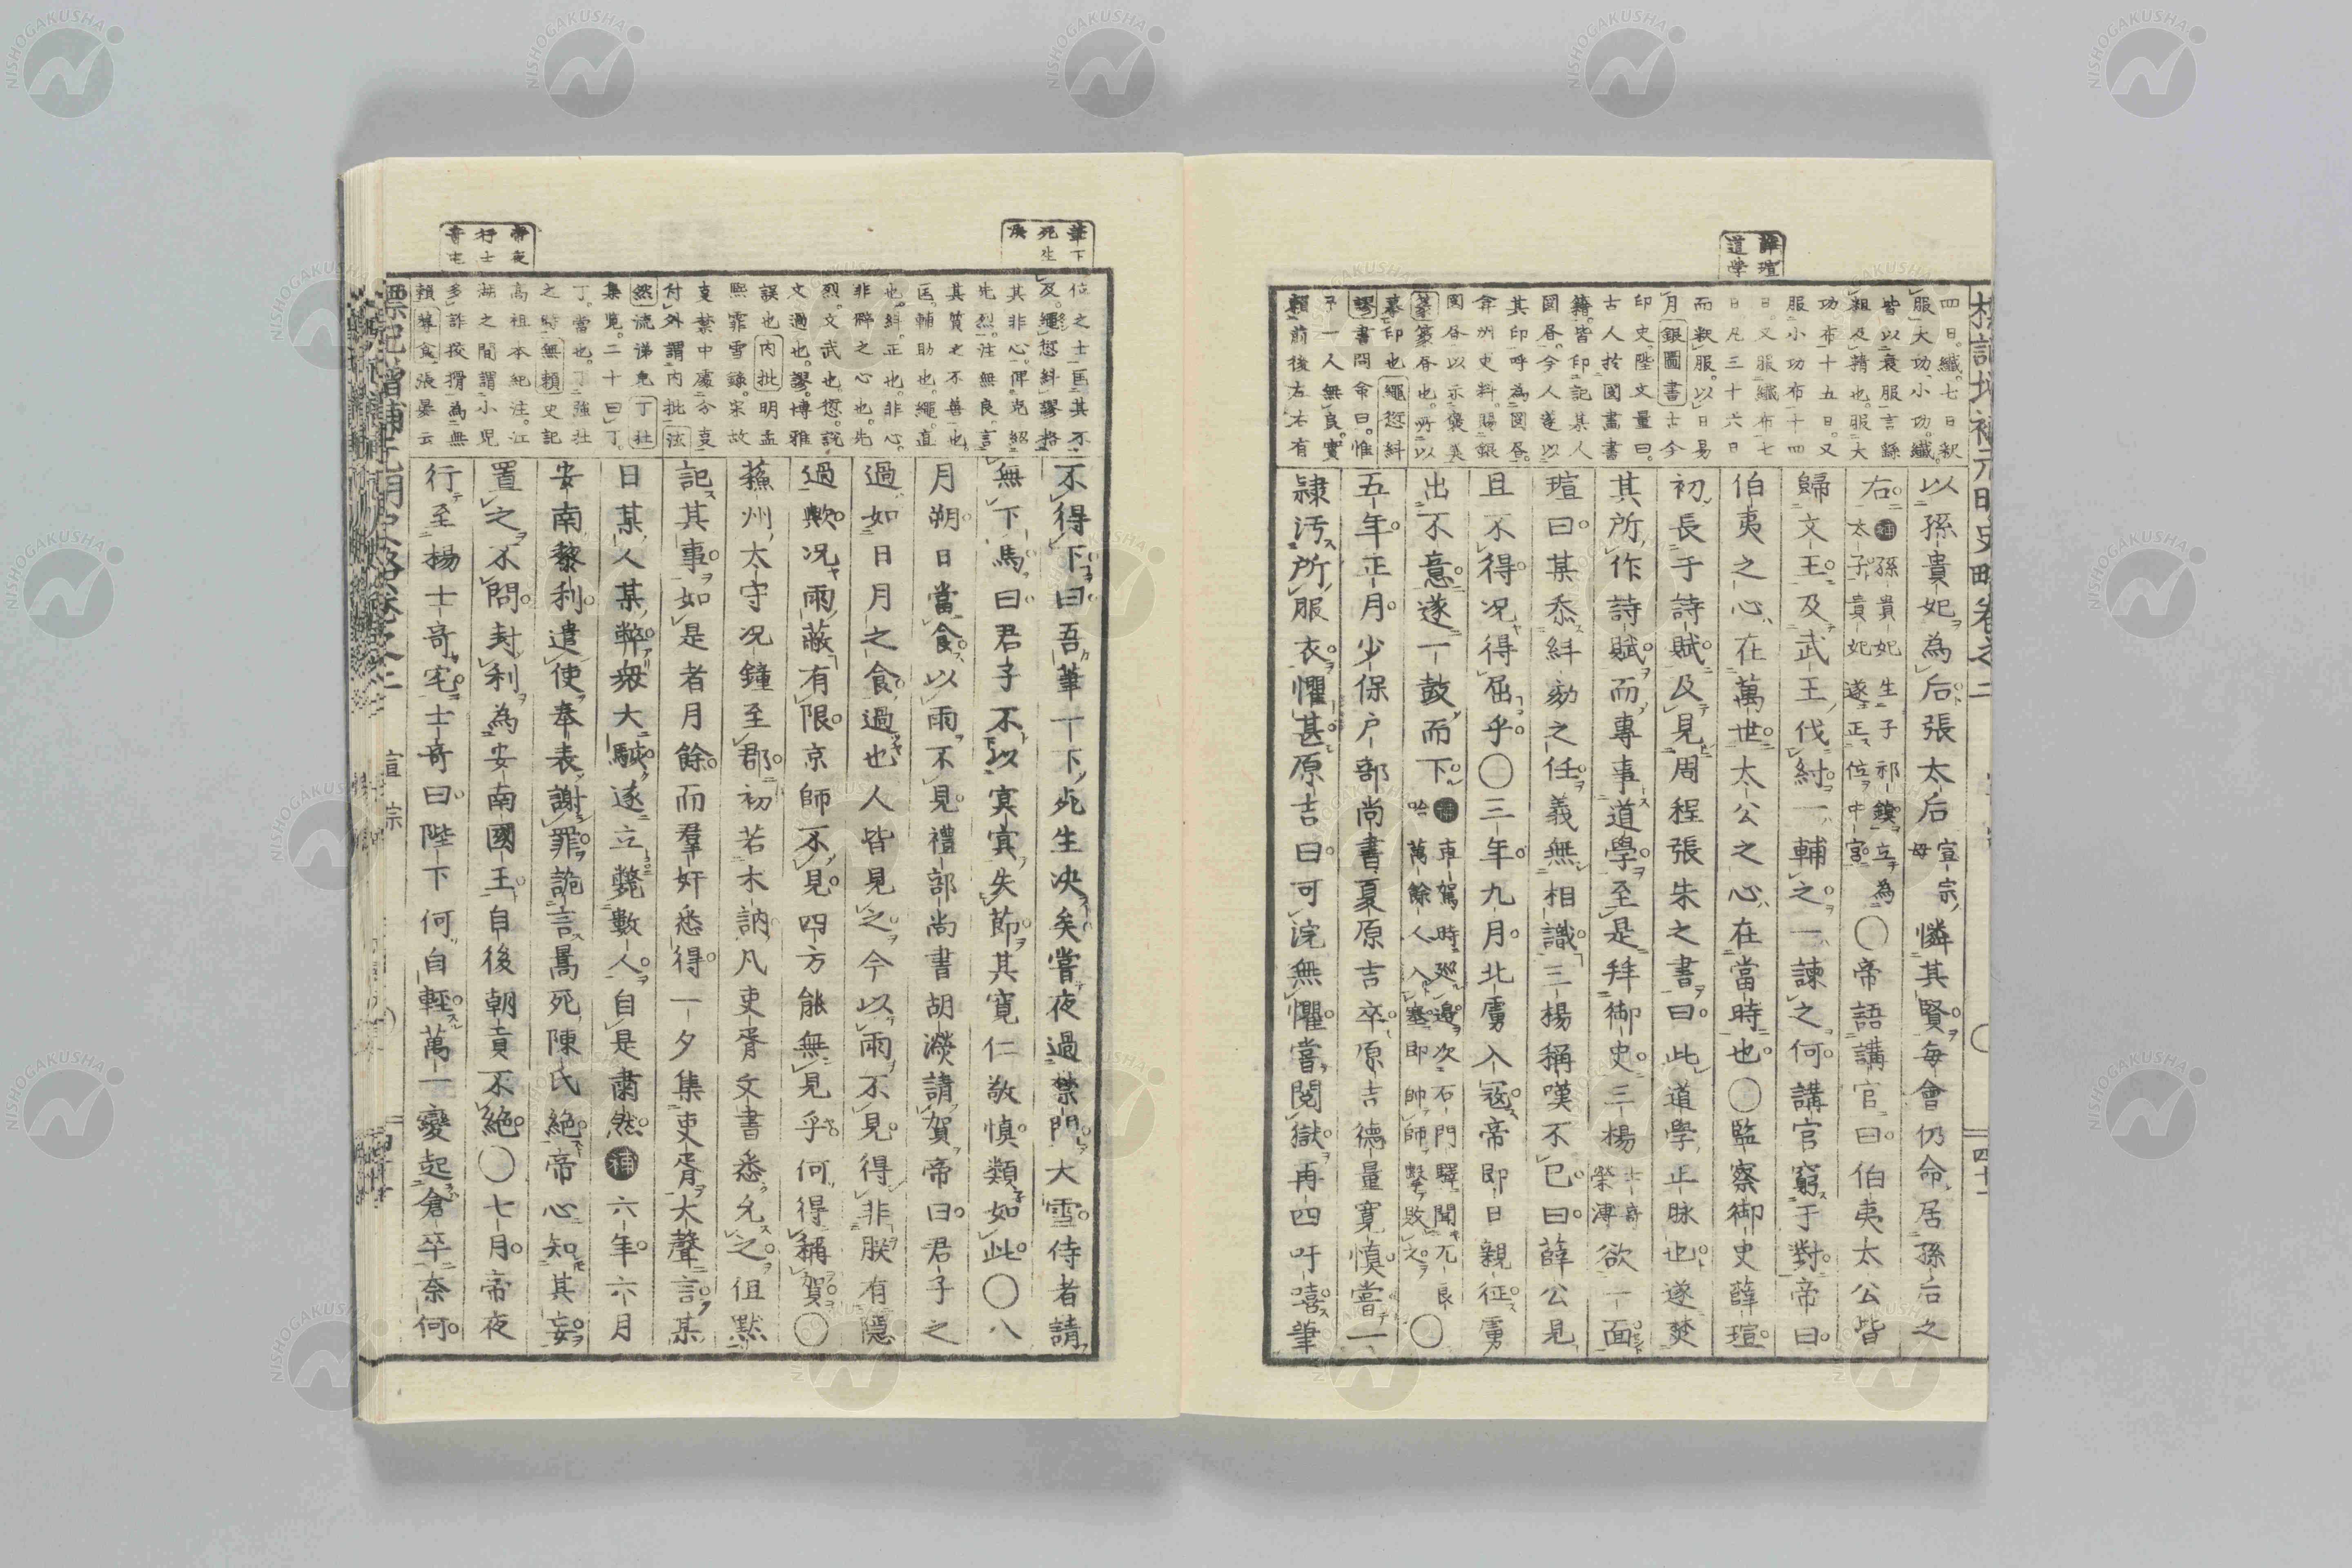 薛瑄
道學
四日。纖七日釈
服大功。小功。纖。
皆以衰服言餘
粗及精也。服大
功布十五日。又
服小功布十四
日。又服纖布七
日凡三十六日
而釈服。以日易
月銀圖書古今
印史。陛文量曰。
古人於圖畫書
籍皆印記某人
圖書。今人遂以
其印呼為圖書。
弇州史料。賜銀
圖書以示褒美
篆篆書也。所以
印也繩愆糾
謬書冏命曰。惟
予一人無良。實
賴前後左右有
以孫貴妃為后張太后宣宗母憐其賢每會仍命居孫后之
右。補孫貴妃生子祁鎮立為太子貴妃遂正位中宮〇帝語講官曰伯夷太公皆
歸文王。及武王伐紂一輔之。一諫之何。講官窮于對帝曰。
伯夷之心在萬世。太公之心在當時也。〇監察御史薛瑄。
初長于詩賦及見周程張朱之書曰此道學正脉也遂焚
其所作詩賦而專事道學至是拜御史三楊士奇榮溥欲一面
瑄曰某忝糾劾之任義無相識三楊稱嘆不已曰薛公見
且不得况得屈乎。〇三年九月北虜入寇帝即日親征虜
出不意遂一鼓而下。補車駕時廵邊次石門驛聞兀良哈萬餘人入塞即帥師擊敗之〇
五年正月少保戶部尚書夏原吉卒原吉德量寬慎嘗一
隷汚所服衣懼甚原吉曰可浣無懼嘗閱獄再四吁嘻筆
筆下
死生
决
帝夜
行士
奇宅
位之士匡其不
及。繩愆糾謬格
其非心。俾克紹
先烈。注無良。言
其質之不善也。
匡。輔助也。繩。直
也。糾。正也。非心。
非僻之心也。先
烈。文武也。愆。說
文過也。謬。博雅
誤也内批明孟
熙霏雪錄。宋故
叓禁中處分叓
付外謂内批法
然流涕皃丁壯
集覧。二十曰丁。
丁。當也。丁強壯
之時無賴史記
高祖本紀注。江
湖之間謂小兒
多詐狡猾為無
賴葬食張晏云
不得下曰吾筆一下死生决矣嘗夜過禁門大雪侍者請
無下馬曰君子不以冥冥失節其寬仁敬慎類如此〇八
月朔日當食以雨不見禮部尚書胡濙請賀帝曰君子之
過如日月之食過也人皆見之今以雨不見得非朕有隱
過歟况雨蔽有限京師不見四方能無見乎何得稱賀〇
蘓州太守况鐘至郡初若木訥凡吏胥文書悉允之但默
記其事如是者月餘而羣奸悉得一夕集吏胥大聲言某
日某人某弊衆大駴遂立斃數人自是肅然補六年六月
安南黎利遣使奉表謝罪詭言暠死陳氏絕帝心知其妄
置之不問封利為安南國王自後朝貢不絕〇七月帝夜
行至楊士奇宅士奇曰陛下何自輕萬一變起倉卒奈何